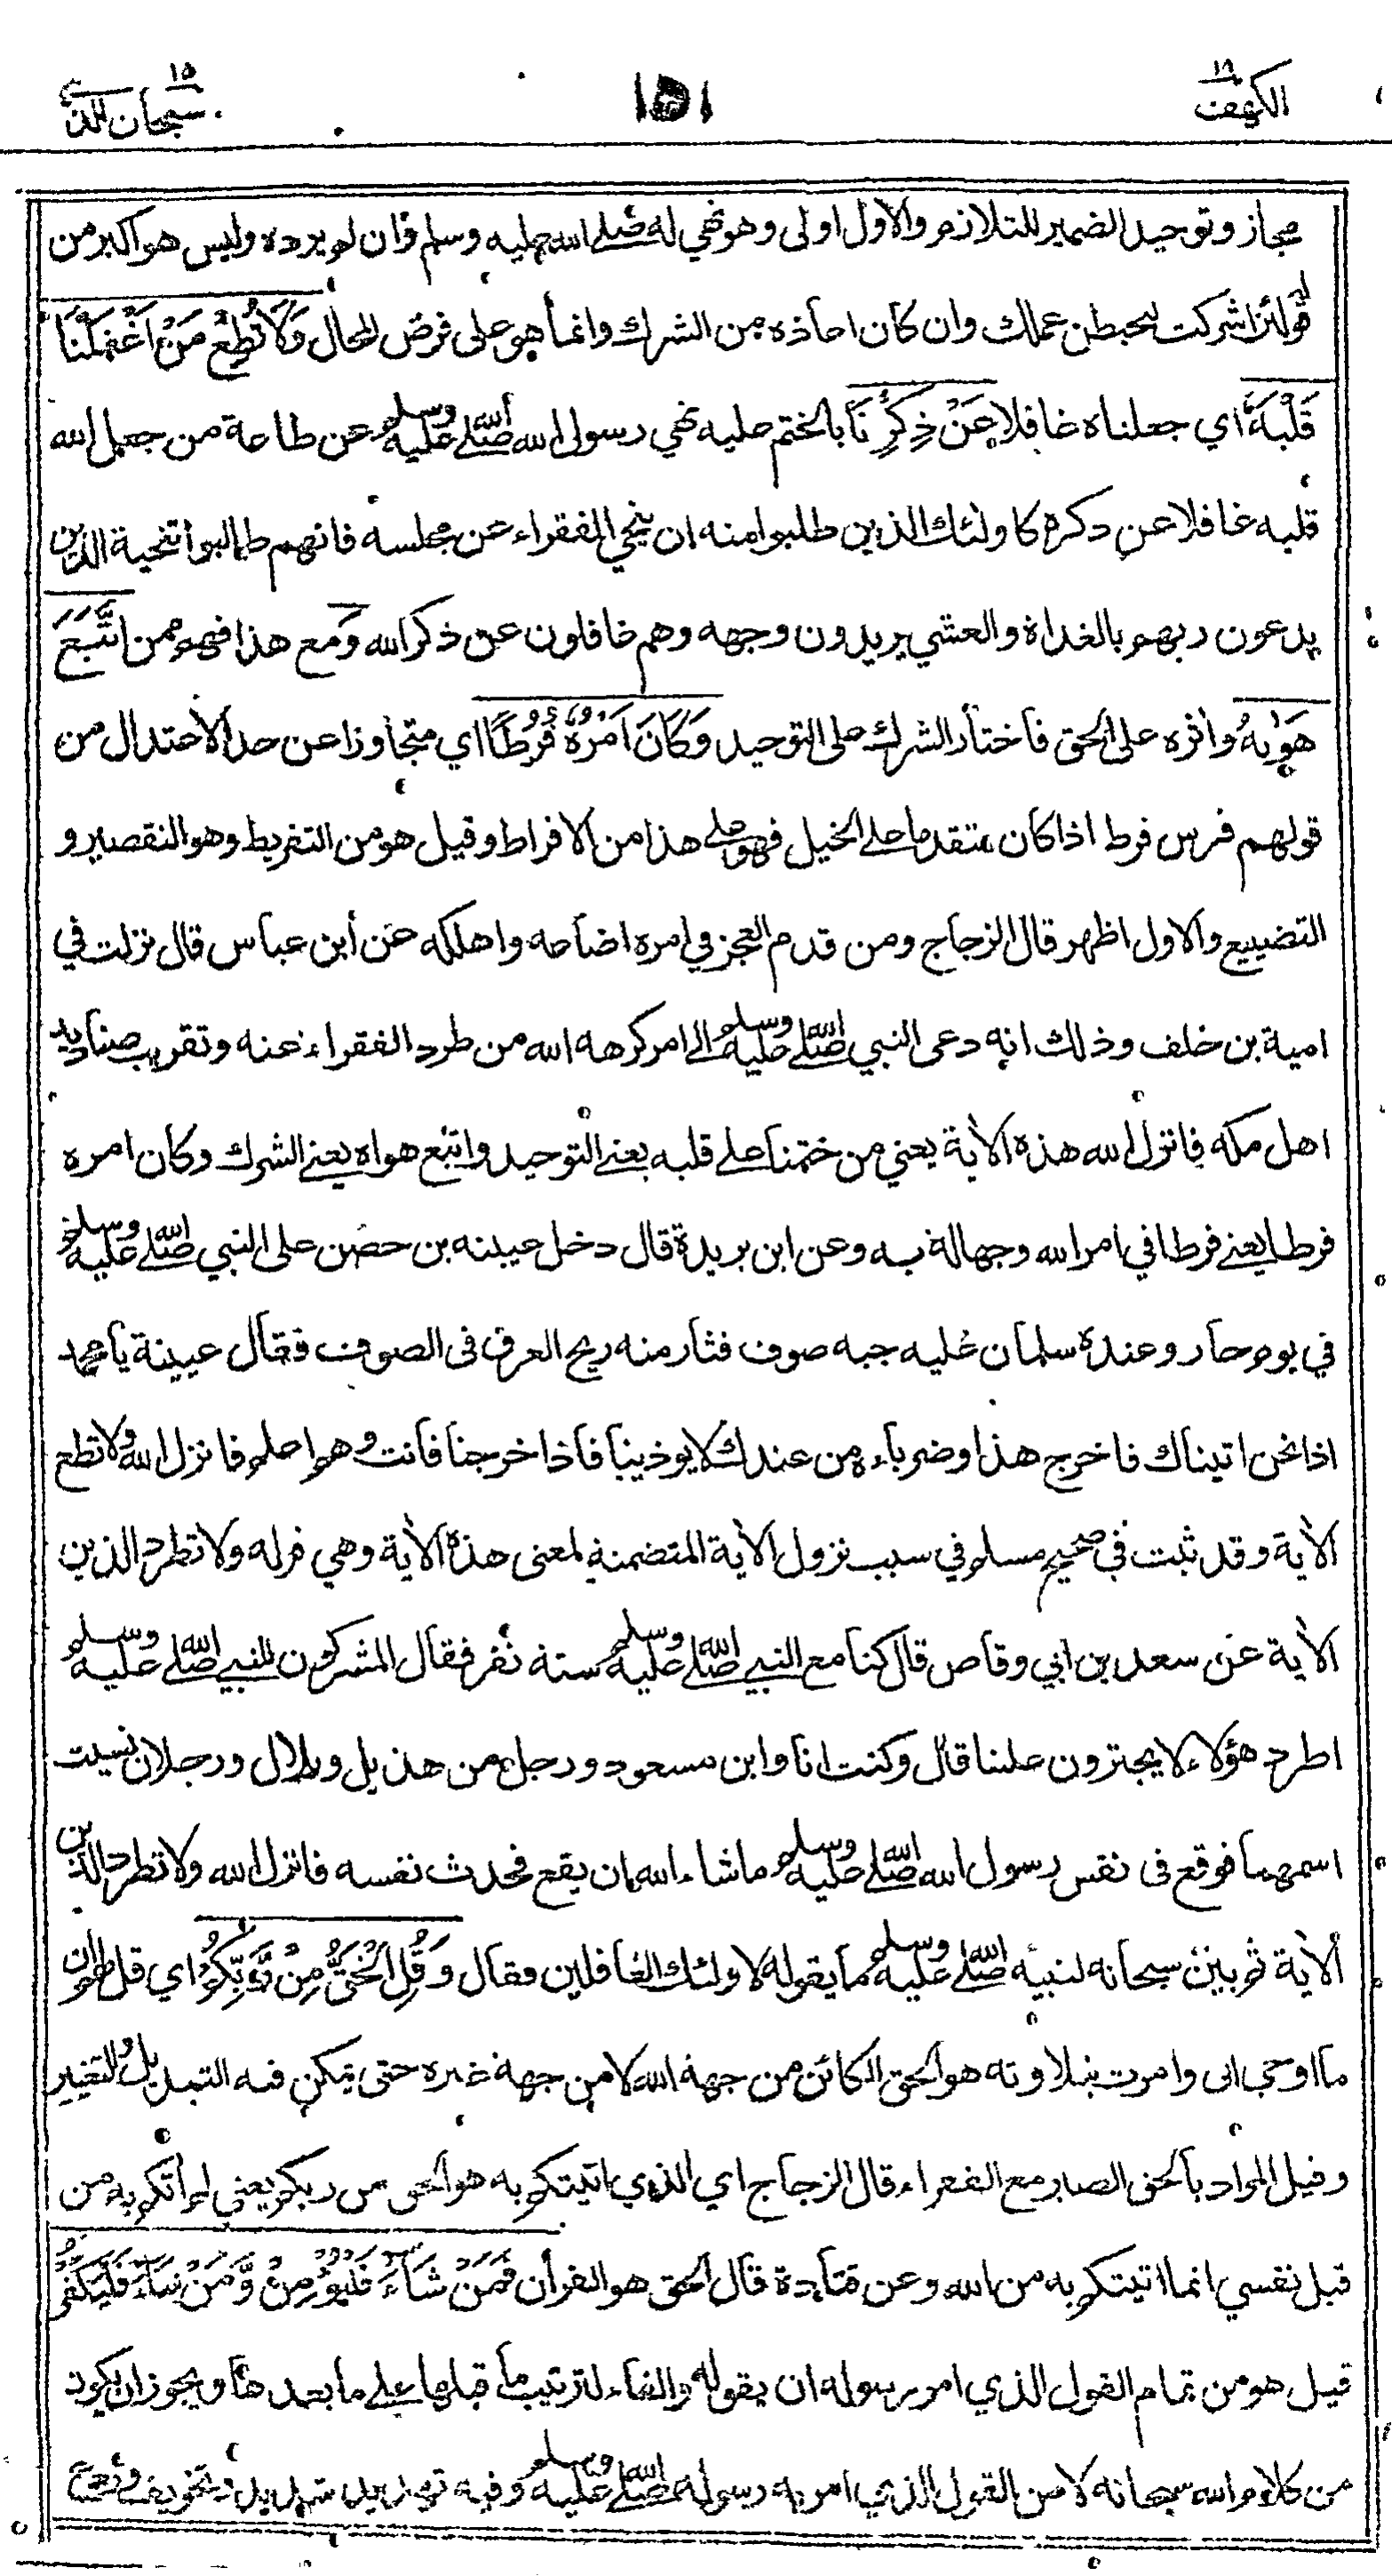 الكهف ١٨
١٥١
سبحان الذي ١٥
مجاز وتوحيد الضمير للتلازم والاول اولى وهو نهي له صلى الله عليه وسلم وان لم يرده وليس هو اكبر من
قوله لئن اشركت ليحبطن عملك وان كان اعاذه من الشرك وانما هو على فرض المحال وَلَا تُطِعْ مَنْ اَغْفَلْنَا
قَلْبَهٗ اي جعلناه غافلا عَنْ ذِكْرِنَا بالختم عليه نهي رسول الله صلى الله عليه وسلم عن طاعة من جعل الله
قلبه غافلا عن ذكره كاولئك الذين طلبوا منه ان ينحي الفقراء عن مجلسه فانهم طالبوا تنحية الذين
يدعون ربهم بالغداة والعشي يريدون وجهه وهم غافلون عن ذكر الله وَمع هذا فهو ممن اتَّبَعَ
هَوٰىهُ واثره على الحق فاختار الشرك على التوحيد وَكَانَ اَمْرُهٗ فُرُطًا اي متجاوزا عن حد الاعتدال من
قولهم فرس فرط اذا كان متقدما على الخيل فهو على هذا من الافراط وقيل هو من التفريط وهو التقصير و
التضييع والاول اظهر قال الزجاج ومن قدم العجز في امره اضاعه واهلكه عن ابن عباس قال نزلت في
امية بن خلف وذلك انه دعى النبي صلى الله عليه وسلم الى امر كرهه الله من طرد الفقراء عنه وتقريب صناديد
اهل مكه فانزل الله هذه الاية يعني من ختمنا على قلبه يعني التوحيد واتبع هواه يعني الشرك وكان امره
فرطا يعني فرطا في امر الله وجهالة به وعن ابن بريدة قال دخل عيينه بن حصن على النبي صلى الله عليه وسلم
في يوم حار وعنده سلمان عليه جبه صوف فثار منه ريح العرق فى الصوف فقال عيينة يا محمد
اذا نحن اتيناك فاخرج هذا وضرباءه من عندك لا يوذينا فاذا خرجنا فانت وهم اعلم فانزل الله ولا تطع
الاية وقد ثبت في صحيح مسلم في سبب نزول الاية المتضمنة لمعنى هذه الاية وهي قوله ولا تطرد الذين
الاية عن سعد بن ابي وقاص قال كنا مع النبي صلى الله عليه وسلم ستة نفر فقال المشركون للنبي صلى الله عليه وسلم
اطرد هؤلاء لا يجترون علينا قال وكنت انا وابن مسعود ورجل من هذيل وبلال ورجلان نسيت
اسمهما فوقع فى نفس رسول الله صلى الله عليه وسلم ما شاء الله ان يقع فحدث نفسه فانزل الله ولا تطرد الذين
الاية ثم بين سبحانه لنبيه صلى الله عليه وسلم ما يقوله لاولئك الغافلين فقال وَقُلِ الْحَقُّ مِنْ رَّبِّكُمْ اي قل لهم ان
ما اوحي الى وامرت بتلاوته هو الحق الكائن من جهة الله لا من جهة غيره حتى يمكن فيه التبديل والتغيير
وقيل المراد بالحق الصابر مع الفقراء قال الزجاج اي الذي اتيتكم به هو الحق من ربكم يعني لم اتكم به من
قبل نفسي انما اتيتكم به من الله وعن قتادة قال الحق هو القرأن فَمَنْ شَآءَ فَلْيُؤْمِنْ وَّمَنْ شَآءَ فَلْيَكْفُرْ
قيل هو من تمام القول الذي امر رسوله ان يقوله والفاء لترتيب ما قبلها على ما بعدها ويجوز ان يكون
من كلام الله سبحانه لا من القول الذي امر به رسوله صلى الله عليه وسلم وفيه تهديد شديد وتخويف